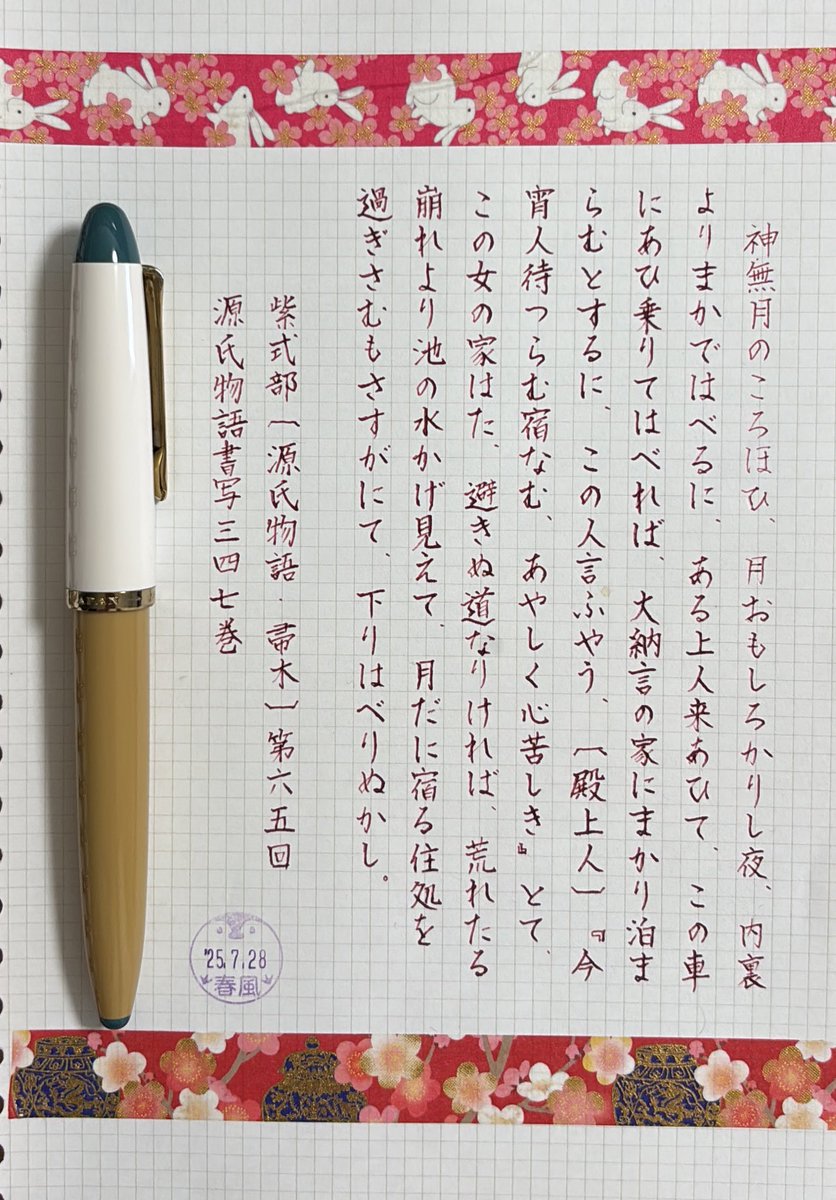 神無月のころほひ、月おもしろかりし夜、内裏
よりまかではべるに、ある上人来あひて、この車
にあひ乗りてはべれば、大納言の家にまかり泊ま
らむとするに、この人言ふやう、〔殿上人〕『今
宵人待つらむ宿なむ、あやしく心苦しき』とて、
この女の家はた、避きぬ道なりければ、荒れたる
崩れより池の水かげ見えて、月だに宿る住処を
過ぎさむもさすがにて、下りはべりぬかし。
紫式部〔源氏物語・帚木〕第六五回
源氏物語書写三四七巻
'25.7.28
春風